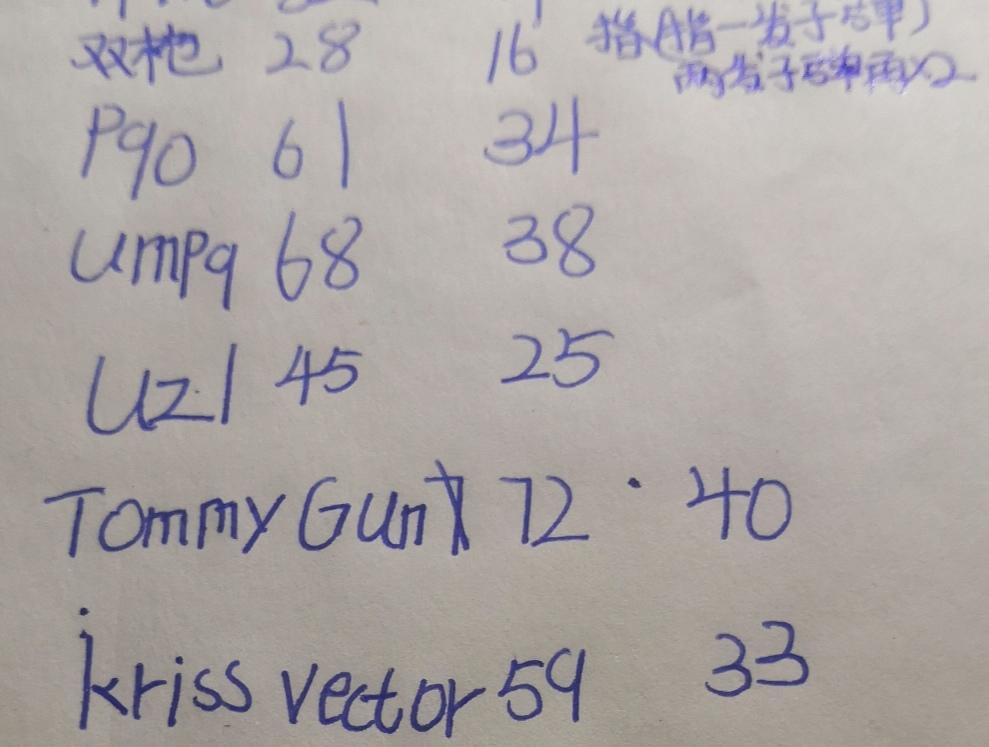 双枪 28 16 指(A指一发子弹)
两发子弹再X2
P90 61 34
UMP9 68 38
UZI 45 25
Tommy Gun 72 · 40
kriss vector 59 33